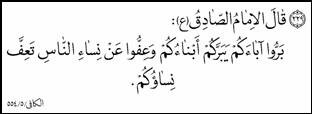 ﴿٢٢٩﴾ قَالَ الْاِمَامُ الصَّادِقُ (ع):
بَرُّوا آبَاءَكُمْ يَبَرَّكُمْ أَبْنَاءُكُمْ وَعِفُّوا عَنْ نِسَاءِ النَّاسِ تَعِفَّ
نِسَاؤُكُمْ.
الكافي/٥/٥٥٤